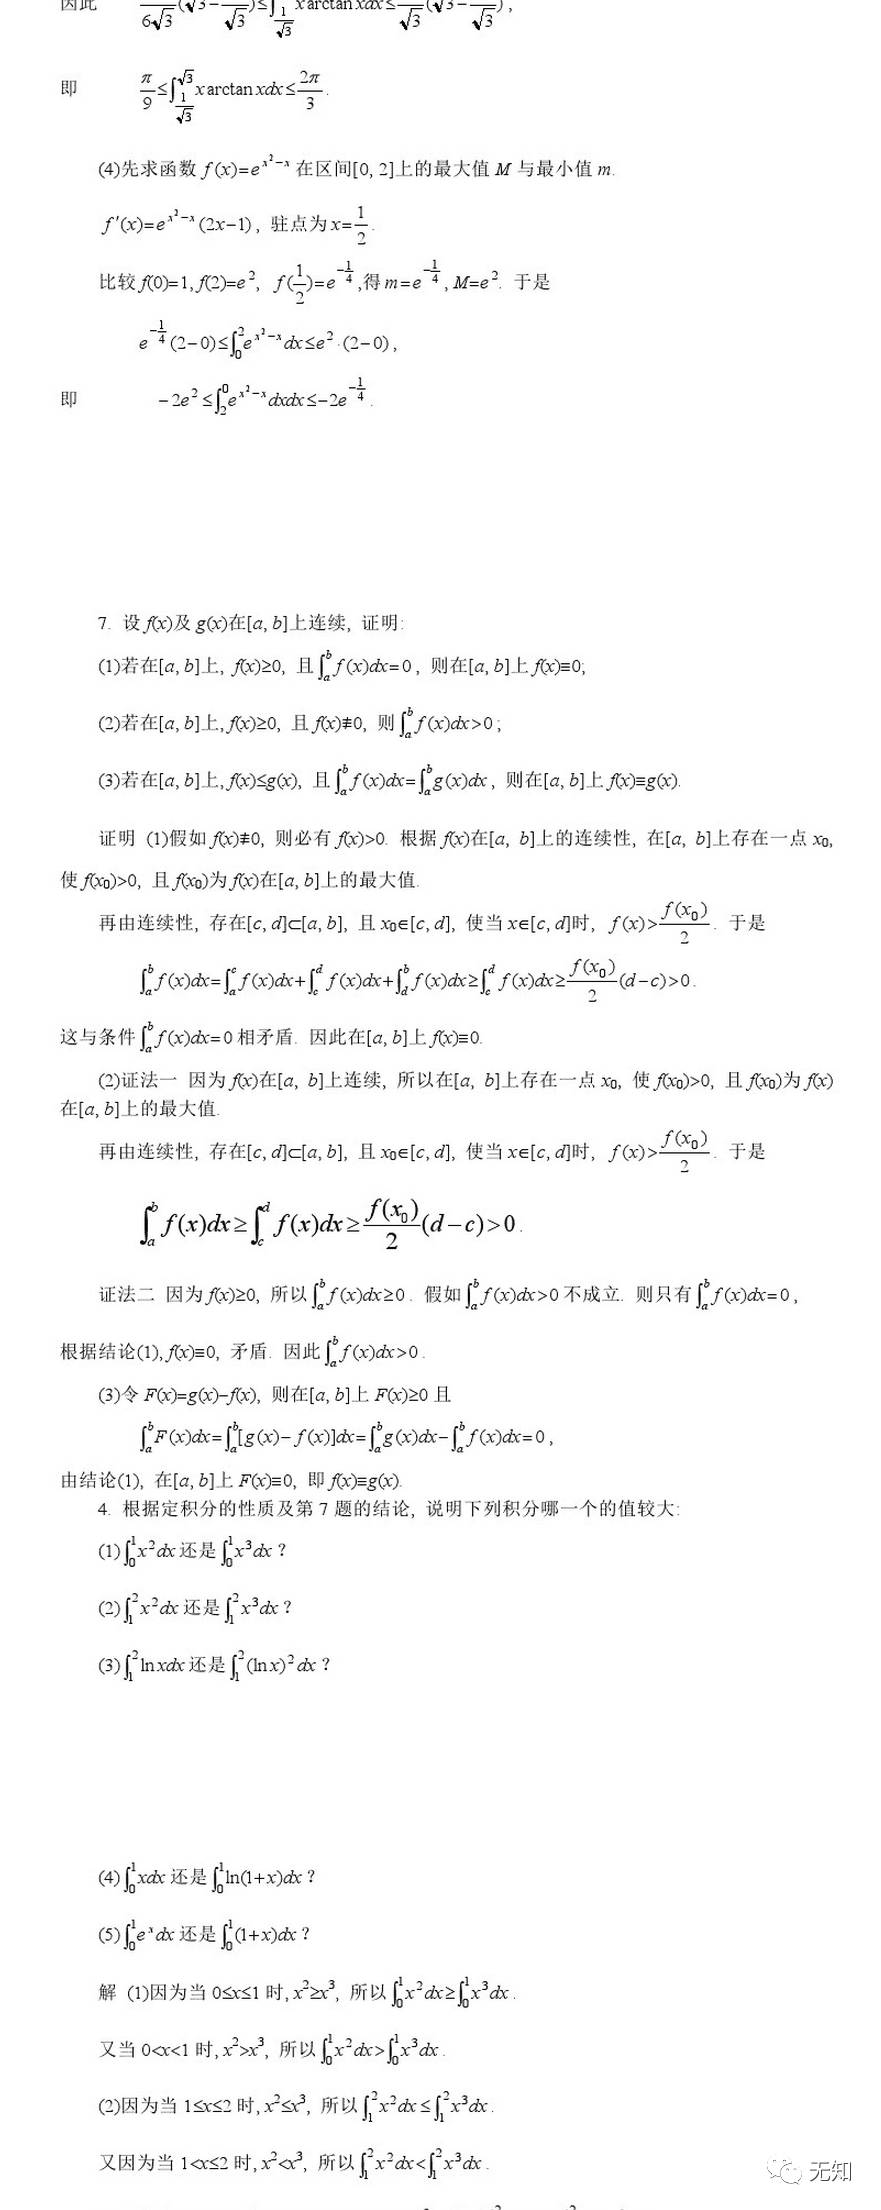 因此 π/(6√3)(√3−1/√3)≤∫_{1/√3}^{√3} x arctan xdx≤π/√3(√3−1/√3),
即 π/9≤∫_{1/√3}^{√3} x arctan xdx≤2π/3.
(4)先求函数 f(x)=e^{x²−x} 在区间[0, 2]上的最大值 M 与最小值 m.
f′(x)=e^{x²−x}(2x−1), 驻点为 x=1/2.
比较 f(0)=1, f(2)=e², f(1/2)=e^{−1/4},得 m=e^{−1/4}, M=e². 于是
e^{−1/4}(2−0)≤∫_0^2 e^{x²−x}dx≤e²·(2−0),
即 −2e²≤∫_2^0 e^{x²−x}dxdx≤−2e^{−1/4}.
7. 设 f(x)及 g(x)在[a, b]上连续, 证明:
(1)若在[a, b]上, f(x)≥0, 且∫_a^b f(x)dx=0, 则在[a, b]上 f(x)≡0;
(2)若在[a, b]上, f(x)≥0, 且 f(x)≢0, 则∫_a^b f(x)dx>0;
(3)若在[a, b]上, f(x)≤g(x), 且∫_a^b f(x)dx=∫_a^b g(x)dx, 则在[a, b]上 f(x)≡g(x).
证明 (1)假如 f(x)≢0, 则必有 f(x)>0. 根据 f(x)在[a, b]上的连续性, 在[a, b]上存在一点 x₀,
使 f(x₀)>0, 且 f(x₀)为 f(x)在[a, b]上的最大值.
再由连续性, 存在[c, d]⊂[a, b], 且 x₀∈[c, d], 使当 x∈[c, d]时, f(x)>f(x₀)/2. 于是
∫_a^b f(x)dx=∫_a^c f(x)dx+∫_c^d f(x)dx+∫_d^b f(x)dx≥∫_c^d f(x)dx≥f(x₀)/2(d−c)>0.
这与条件∫_a^b f(x)dx=0 相矛盾. 因此在[a, b]上 f(x)≡0.
(2)证法一 因为 f(x)在[a, b]上连续, 所以在[a, b]上存在一点 x₀, 使 f(x₀)>0, 且 f(x₀)为 f(x)
在[a, b]上的最大值.
再由连续性, 存在[c, d]⊂[a, b], 且 x₀∈[c, d], 使当 x∈[c, d]时, f(x)>f(x₀)/2. 于是
∫_a^b f(x)dx≥∫_c^d f(x)dx≥f(x₀)/2(d−c)>0.
证法二 因为 f(x)≥0, 所以∫_a^b f(x)dx≥0. 假如∫_a^b f(x)dx>0 不成立. 则只有∫_a^b f(x)dx=0,
根据结论(1), f(x)≡0, 矛盾. 因此∫_a^b f(x)dx>0.
(3)令 F(x)=g(x)−f(x), 则在[a, b]上 F(x)≥0 且
∫_a^b F(x)dx=∫_a^b[g(x)−f(x)]dx=∫_a^b g(x)dx−∫_a^b f(x)dx=0,
由结论(1), 在[a, b]上 F(x)≡0, 即 f(x)≡g(x).
4. 根据定积分的性质及第 7 题的结论, 说明下列积分哪一个的值较大:
(1)∫_0^1 x²dx 还是∫_0^1 x³dx?
(2)∫_1^2 x²dx 还是∫_1^2 x³dx?
(3)∫_1^2 ln xdx 还是∫_1^2(ln x)²dx?
(4)∫_0^1 xdx 还是∫_0^1 ln(1+x)dx?
(5)∫_0^1 e^x dx 还是∫_0^1(1+x)dx?
解 (1)因为当 0≤x≤1 时, x²≥x³, 所以∫_0^1 x²dx≥∫_0^1 x³dx.
又当 0<x<1 时, x²>x³, 所以∫_0^1 x²dx>∫_0^1 x³dx.
(2)因为当 1≤x≤2 时, x²≤x³, 所以∫_1^2 x²dx≤∫_1^2 x³dx.
又因为当 1<x≤2 时, x²<x³, 所以∫_1^2 x²dx<∫_1^2 x³dx.
无知